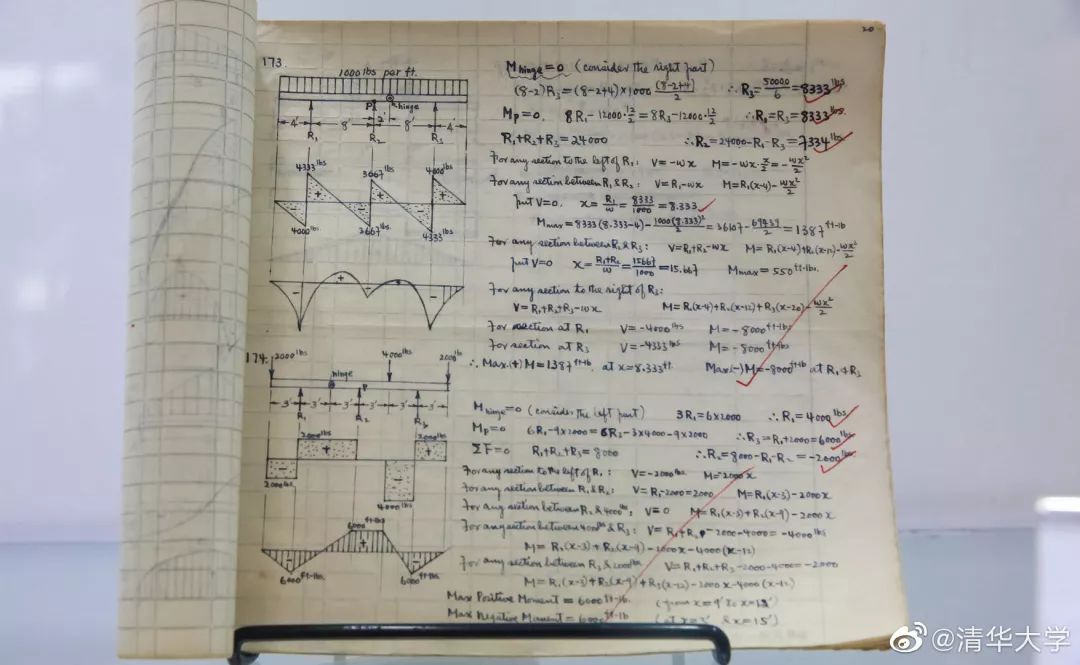 20
173.
1000 lbs per ft.
P
hinge
2'
4' 8' 8' 4'
R₁ R₂ R₃
4333 lbs
3667 lbs
4000 lbs
+ + +
− − −
4000 lbs
3667 lbs
4333 lbs
+
− − −
M hinge = 0 (consider the right part)
(8-2)R₃ = (8-2+4)×1000 (8-2+4)/2 ∴ R₃ = 50000/6 = 8333 lbs
Mp = 0. 8R₁ - 12000·12/2 = 8R₃ - 12000·12/2 ∴ R₁ = R₃ = 8333 lbs.
R₁+R₂+R₃ = 24000 ∴ R₂ = 24000-R₁-R₃ = 7334 lbs
For any section to the left of R₁: V = -wx M = -wx·x/2 = -wx²/2
For any section between R₁ & R₂: V = R₁-wx M = R₁(x-4) - wx²/2
put V=0. x = R₁/w = 8333/1000 = 8.333
Mmax = 8333(8.333-4) - 1000(8.333)²/2 = 36107 - 69439/2 = 1387 ft-lb
For any section between R₂ & R₃: V = R₁+R₂-wx M = R₁(x-4)+R₂(x-12)-wx²/2
put V=0 x = R₁+R₂/w = 15667/1000 = 15.667 Mmax = 550 ft-lbs.
For any section to the right of R₃:
V = R₁+R₂+R₃-wx M = R₁(x-4)+R₂(x-12)+R₃(x-20)-wx²/2
For section at R₁ V = -4000 lbs M = -8000 ft-lbs
For section at R₃ V = -4333 lbs M = -8000 ft-lbs
∴ Max.(+)M = 1387 ft-lb. at x = 8.333 ft. Max(-)M = -8000 ft-lb at R₁ & R₃
174.
2000 lbs
4000 lbs
2000 lb
hinge
P
3' 3' 3' 3' 3' 3'
R₁ R₂ R₃
2000 lbs
2000 lbs
+ +
− −
2000 lbs
4000 lbs
6000 ft-lbs
+
− −
6000 ft-lbs.
6000 ft-lbs.
M hinge = 0 (consider the left part) 3R₁ = 6×2000 ∴ R₁ = 4000 lbs
Mp = 0 6R₁-9×2000 = 6R₃-3×4000-9×2000 ∴ R₃ = R₁+2000 = 6000 lbs
ΣF = 0 R₁+R₂+R₃ = 8000 ∴ R₂ = 8000-R₁-R₂ = -2000 lbs
For any section to the left of R₁: V = -2000 lbs. M = -2000x
For any section between R₁ & R₂: V = R₁-2000 = 2000 M = R₁(x-3)-2000x
For any section between R₂ & 4000 lbs: V = 0 M = R₁(x-3)+R₂(x-9)-2000x
For any section between 4000 lbs & R₃: V = R₁+R₂-2000-4000 = -4000 lbs
M = R₁(x-3)+R₂(x-9)-2000x-4000(x-12)
For any section between R₃ & 2000 lbs. V = R₁+R₂+R₃-2000-4000 = -2000
M = R₁(x-3)+R₂(x-9)+R₃(x-12)-2000x-4000(x-12)
Max Positive Moment = 6000 ft-lb. (from x=9' to x=12')
Max Negative Moment = 6000 ft-lb (at x=3' & x=15')
@清华大学